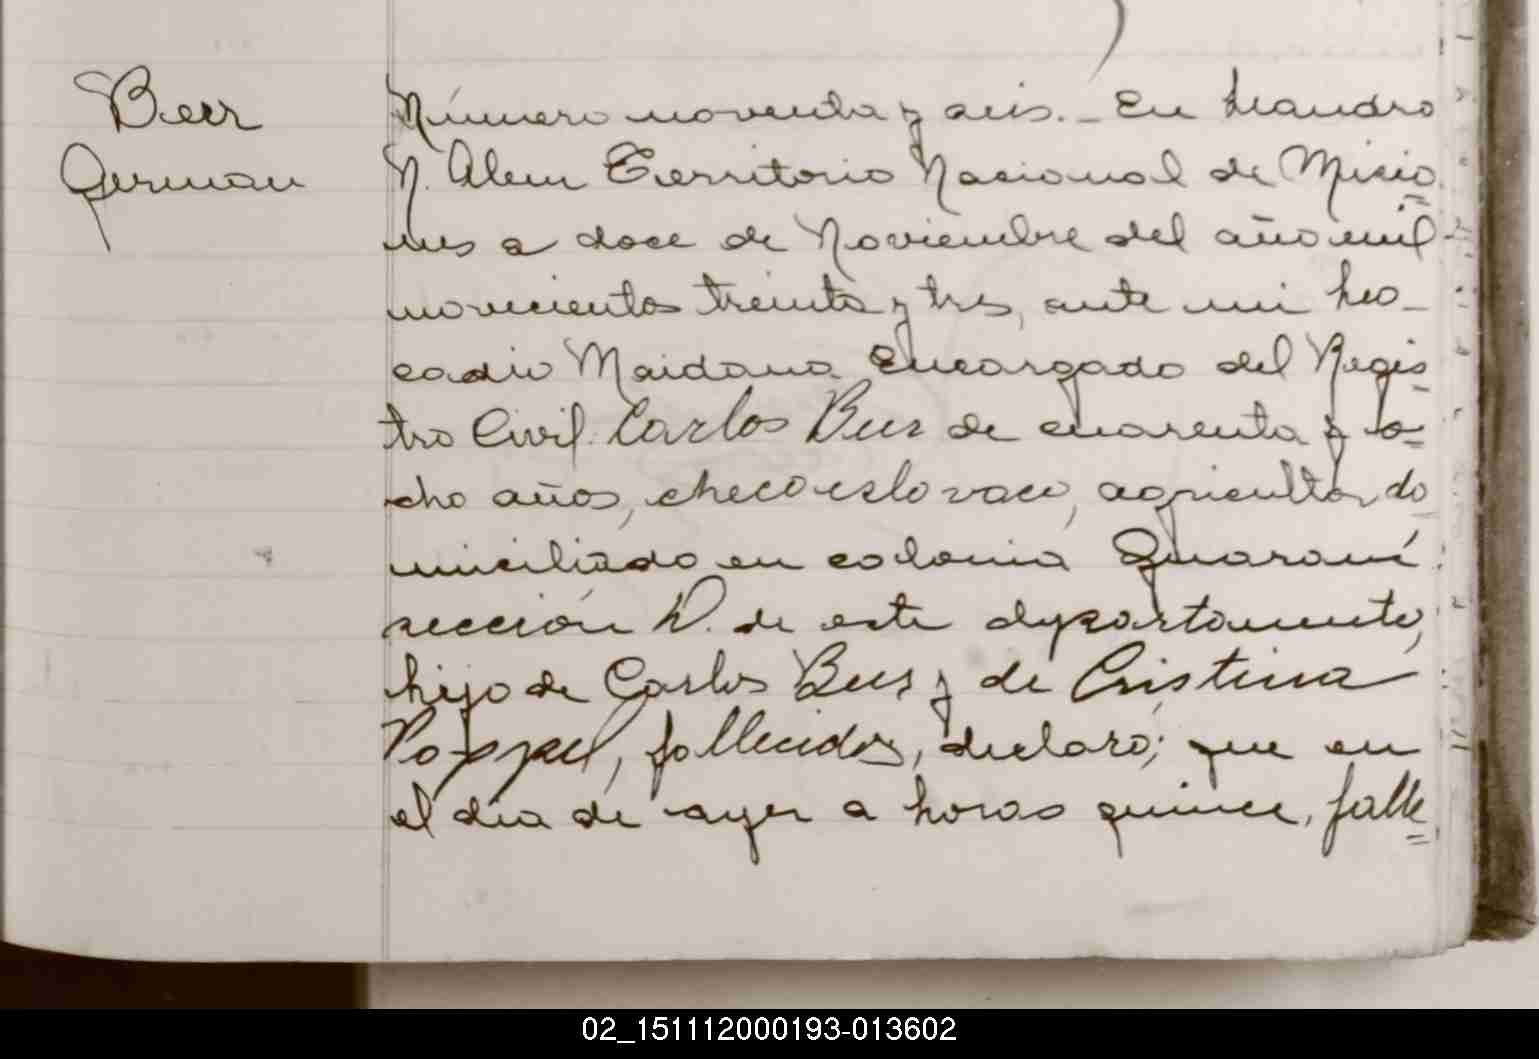 Beer
German
Número noventa y seis.- En Leandro
N. Alem Territorio Nacional de Misio=
nes a doce de Noviembre del año mil
novecientos treinta y tres, ante mi Leo-
cadio Maidana Encargado del Regis=
tro Civil. Carlos Beer de cuarenta y o=
cho años, checoeslovaco, agricultor do
miciliado en colonia Guaraní
sección D. de este departamento,
hijo de Carlos Beer y de Cristina
Poppel, fallecidos, declaró; que en
el día de ayer a horas quince, falle=
02_151112000193-013602